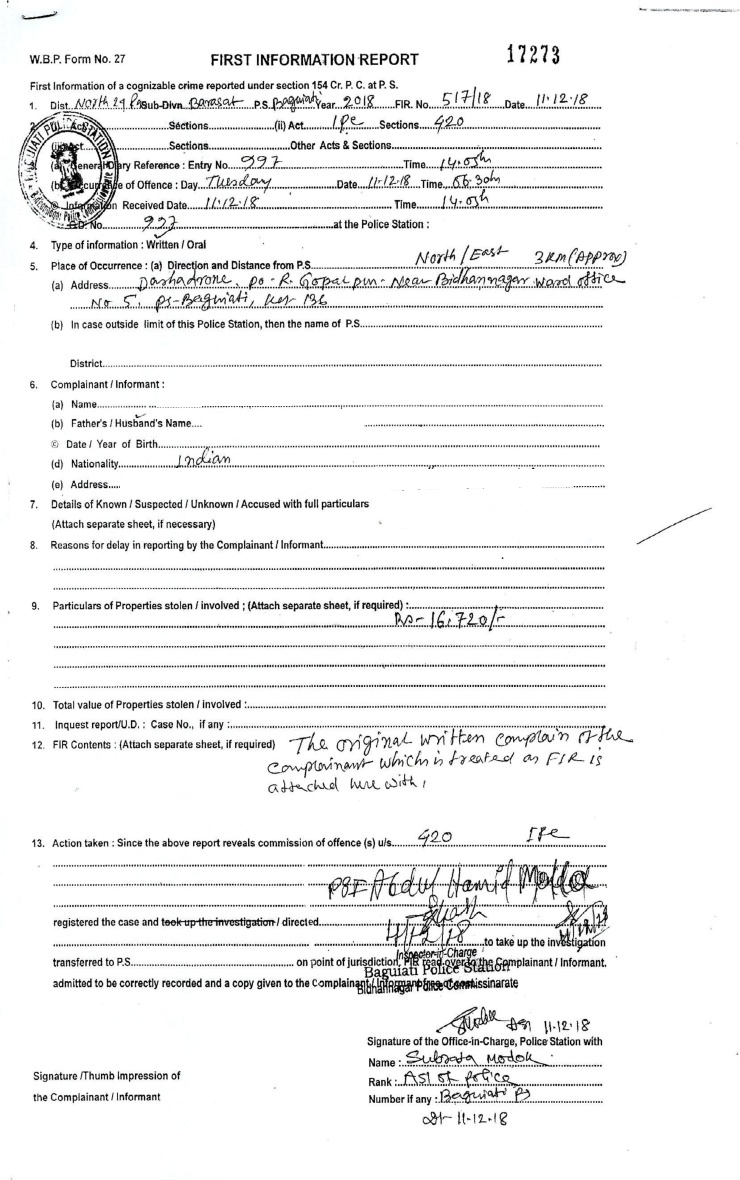 W.B.P. Form No. 27 FIRST INFORMATION REPORT 17273
First Information of a cognizable crime reported under section 154 Cr. P. C. at P. S.
1. Dist. North 24 Sub-Divn. Barasat P.S. Baguiati Year 2018 FIR. No. 517/18 Date 11.12.18
2. Act Sections (ii) Act IPC Sections 420
Sections Other Acts & Sections
3. (a) General Diary Reference : Entry No. 997 Time 14.05h
(b) Occurrence of Offence : Day Tuesday Date 11-12-18 Time 06.30h
Information Received Date 11.12.18 Time 14.05h
G.D. No. 997 at the Police Station :
4. Type of information : Written / Oral
5. Place of Occurrence : (a) Direction and Distance from P.S. North/East 3KM (Approx)
(a) Address Dashadrone, po - R. Gopalpur - Near Bidhannagar Ward office
No 5, ps-Baguiati, 136
(b) In case outside limit of this Police Station, then the name of P.S.
District
6. Complainant / Informant :
(a) Name
(b) Father's / Husband's Name
© Date / Year of Birth
(d) Nationality Indian
(e) Address
7. Details of Known / Suspected / Unknown / Accused with full particulars
(Attach separate sheet, if necessary)
8. Reasons for delay in reporting by the Complainant / Informant
9. Particulars of Properties stolen / involved ; (Attach separate sheet, if required) :
Rs- 16,720/-
10. Total value of Properties stolen / involved :
11. Inquest report/U.D. : Case No., if any :
12. FIR Contents : (Attach separate sheet, if required) The original written complain of the
complainant which is treated as FIR is
attached here with,
13. Action taken : Since the above report reveals commission of offence (s) u/s. 420 IPC
PSI Abdul Hamid Molla
registered the case and took up the investigation / directed
to take up the investigation
Inspector-in-Charge
transferred to P.S. on point of jurisdiction, FIR read over to the Complainant / Informant.
Baguiati Police Station
admitted to be correctly recorded and a copy given to the Complainant / Informant free of cost
Bidhannagar Police Commissinarate
ASI 11-12-18
Signature of the Office-in-Charge, Police Station with
Name : Subrata Modok
Signature /Thumb Impression of
Rank : ASI of police
the Complainant / Informant
Number if any : Baguiati PS
Dt- 11-12-18